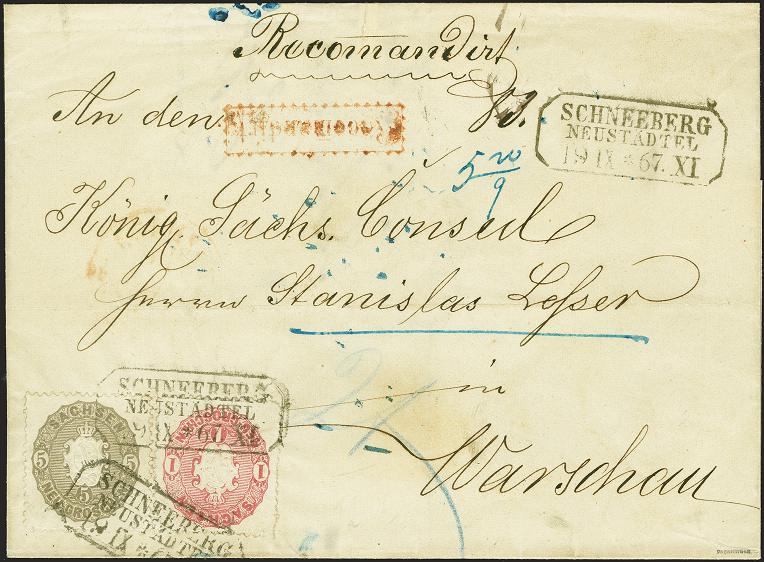 Recomandirt
An den
SCHNEEBERG
NEUSTÄDTEL
19 IX * 67. XI
5 20/9
König Sächs. Consul
Herrn Stanislas Lesser
in
Warschau
SCHNEEBERG
NEUSTÄDTEL
19 IX * 67. XI
SACHSEN
5 5 5
NEUGROSCHEN
1 1
SCHNEEBERG
NEUSTÄDTEL
19 IX * 67